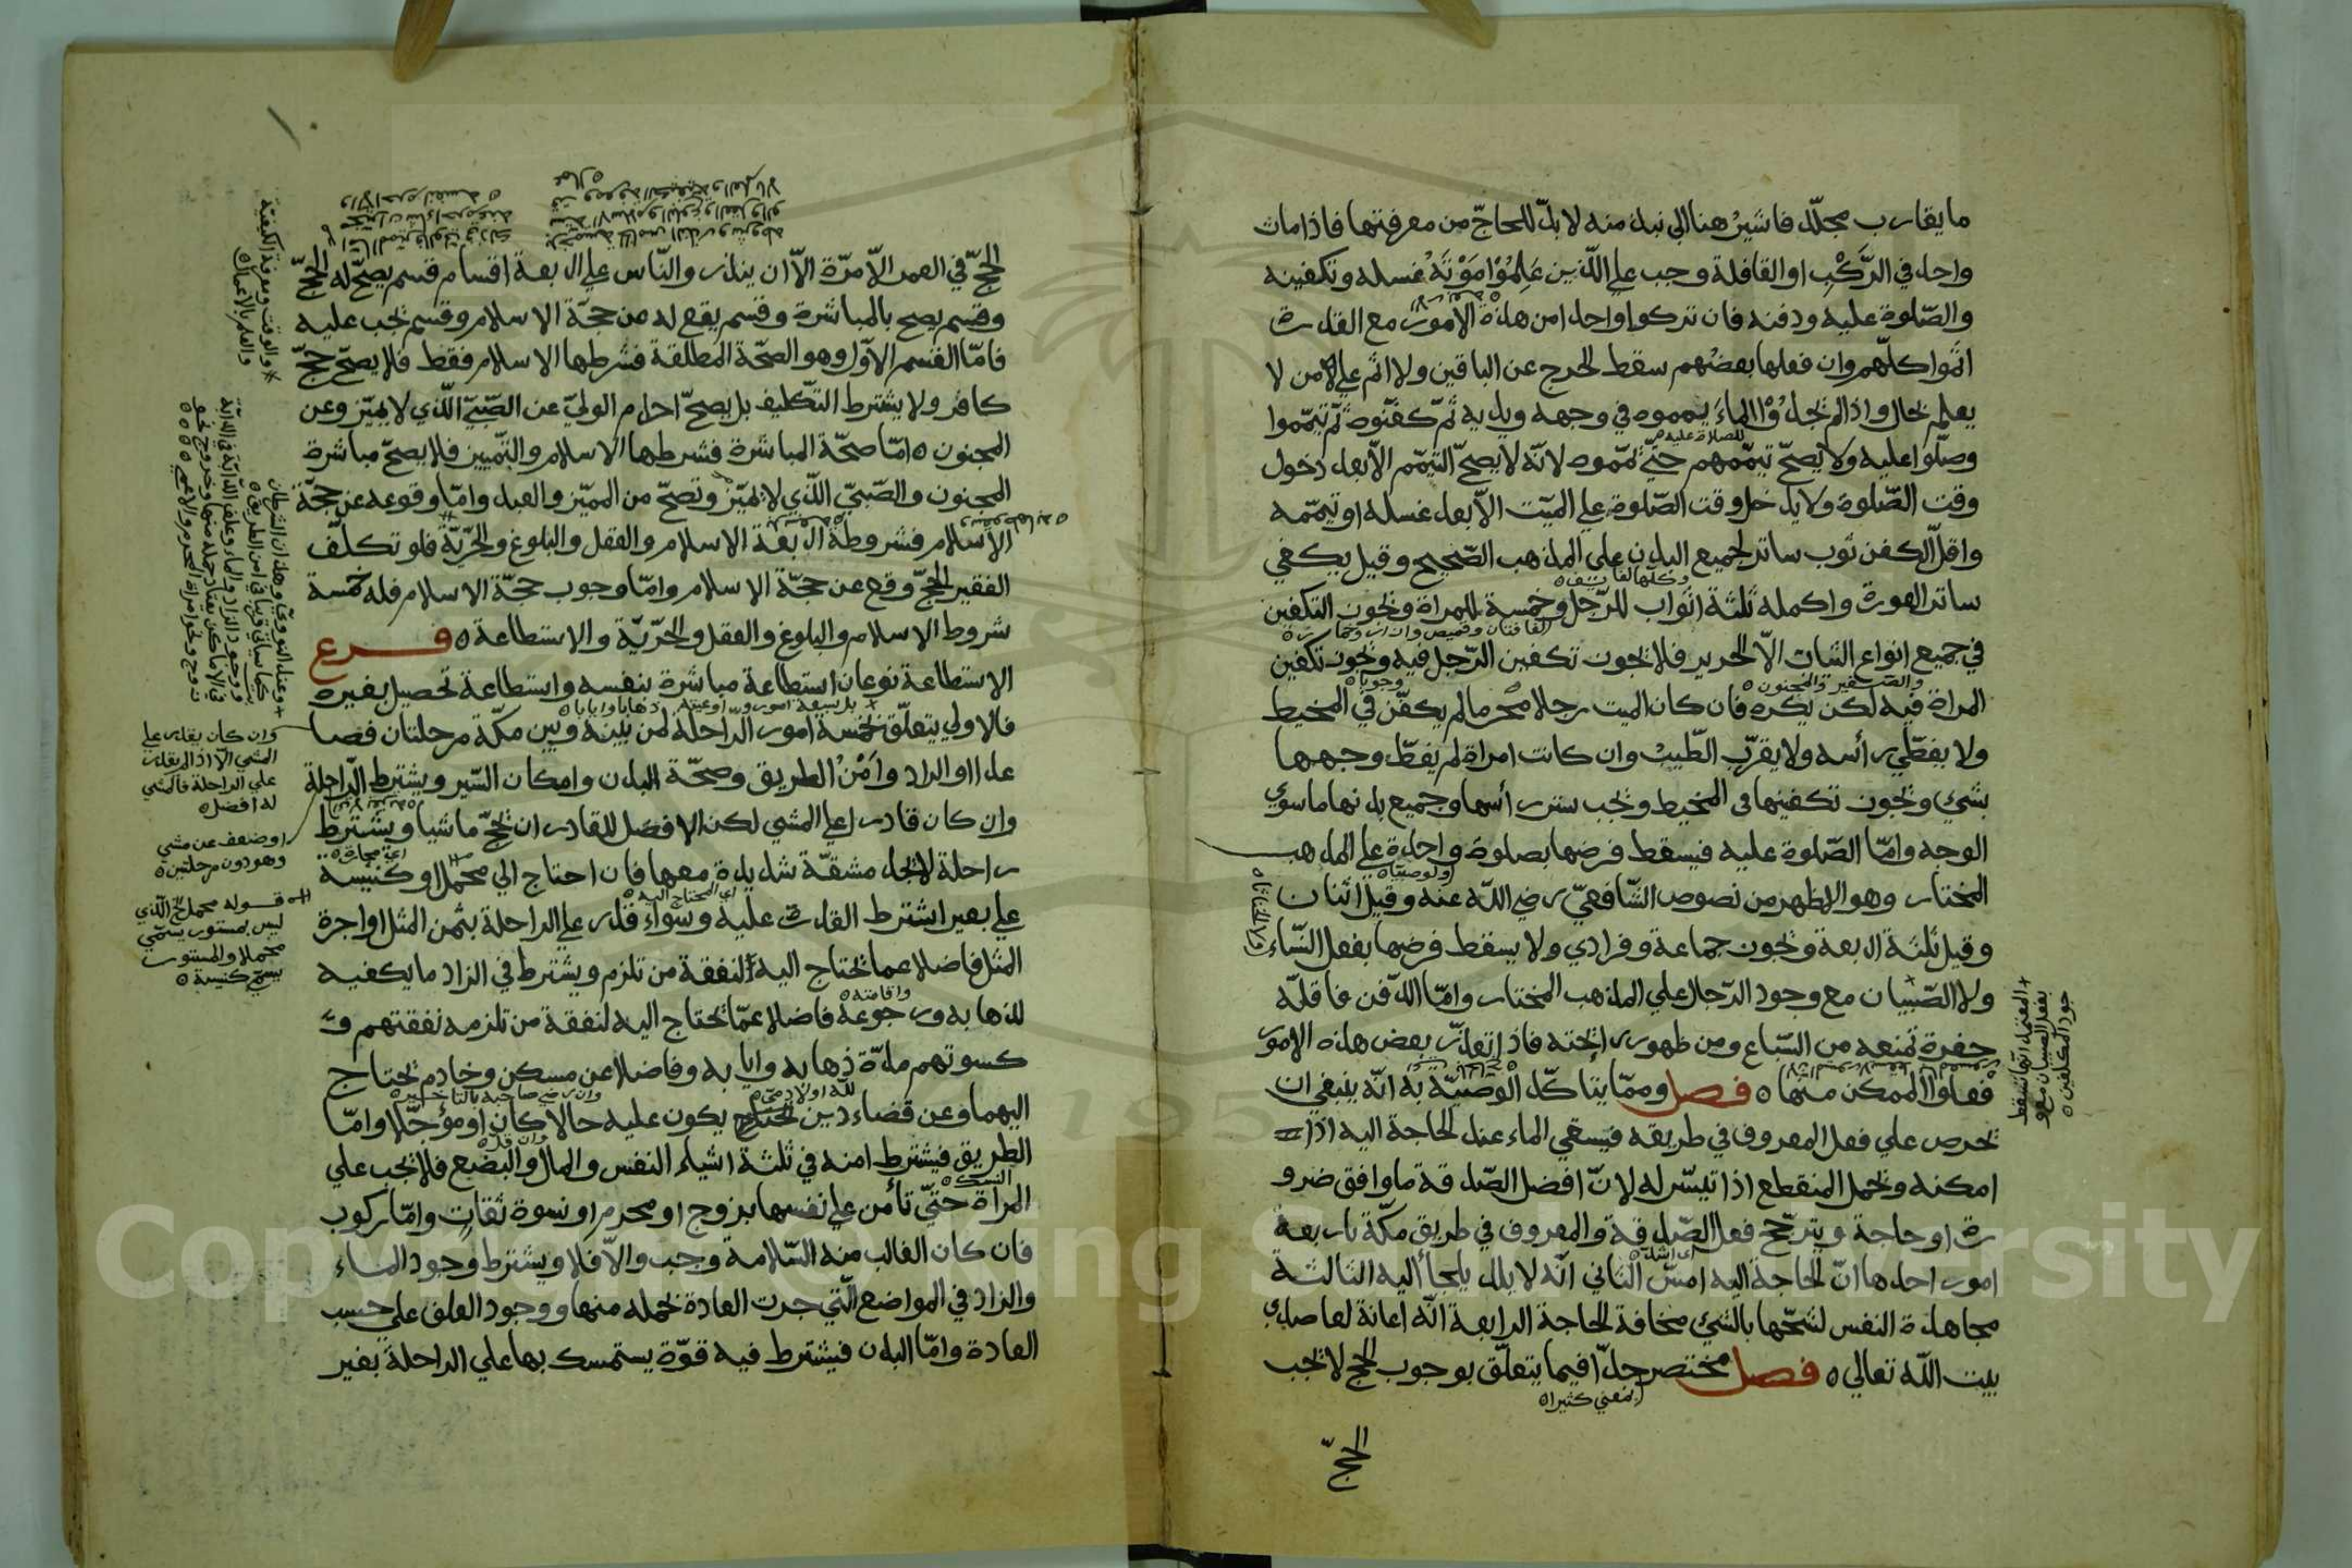 ما يقارب مجلّد فاشيرُ هنا الي نبذ منه لا بدّ للحاجّ من معرفتها فاذا مات
واحد في الرَّكْبِ او القافلة وجب علي الّذين عَلِمُوْا مَوْتَهُ غسله وتكفينه
والصّلوة عليه ودفنه فان تركوا واحدا من هذه الامور مع القدرة
اثموا كلّهم وان فعلها بعضُهم سقط الحرج عن الباقين ولا اثم علي من لا
يعلم بحال واذا لم يجدُوْا الماءَ يمموه في وجهه ويديه ثمّ كفّنوه ثمّ تيمّموا
للصلاة عليه
وصلّوا عليه ولا يصحّ تيمّمهم حتّي يمّموه لانّه لا يصحّ التيمّم الاّ بعد دخول
وقت الصّلوة ولا يدخل وقت الصّلوة علي الميّت الاّ بعد غسله او تيمّمه
واقلّ الكفن ثوب ساتر لجميع البدن علي المذهب الصّحيح وقيل يكفي
وكلّها لفائف
ساتر العورة واكمله ثلثة اثواب للرّجل وخمسة للمراة ويجوز التكفين
لفافتان وقميص وازار وخمار
في جميع انواع الثياب الاّ الحرير فلا يجوز تكفين الرّجل فيه ويجوز تكفين
والصّغير والمجنون
وجوبا
المراة فيه لكن يكره فان كان الميت رجلا محرما لم يكفّن في المخيط
ولا يغطّي رأسه ولا يقرّب الطّيبْ وان كانت امراة لم يغطّ وجهها
بشئ ويجوز تكفينها في المخيط ويجب ستر رأسها وجميع بدنها ما سوي
الوجه وامّا الصّلوة عليه فيسقط فرضها بصلوة واحدة علي المذهب
ولو صبيّا
المختار وهو الاظهر من نصوص الشّافعيّ رضي اللّه عنه وقيل اثنان
وقيل ثلثة اربعة ويجوز جماعة وفرادي ولا يسقط فرضها بفعل النّساء
ولا الصّبيان مع وجود الرّجال علي المذهب المختار وامّا الدّفن فاقلّه
المعتمد انّها تسقط
بفعل الصبيان مع و
جود المكلّفين
حفرة تمنعه من السّباع ومن ظهور رائحته فاذا تعذّر بعض هذه الامور
فعلوا الممكن منها ه فصل وممّا يتاكّد الوصيّة به انّه ينبغي ان
يحرص علي فعل المعروف في طريقه فيسقي الماء عند الحاجة اليه اذا
امكنه ويحمل المنقطع اذا تيسّر له لانّ افضل الصّدقة ما وافق ضرو
رة او حاجة ويترجّح فعل الصّدقة والمعروف في طريق مكّة باربعة
اي اشدّ
امور احدها انّ الحاجة اليه امسّ الثاني انّه لا بلد يلجأ اليه الثالثة
مجاهدة النفس لشحّها بالشئ مخافة الحاجة الرابعة انّه اعانة لقاصدي
بيت اللّه تعالي ه فصل مختصر جدّا فيما يتعلّق بوجوب الحج لا يجب
بمعني كثيرا
الحجّ
الحجّ في العمر الاّ مرّة الاّ ان ينذر والنّاس علي اربعة اقسام قسم يصحّ له الحجّ
وقسم يصح بالمباشرة وقسم يقع له من حجّة الاسلام وقسم يجب عليه
فامّا القسم الاوّل وهو الصّحّة المطلقة فشرطها الاسلام فقط فلا يصحّ حجّ
كافر ولا يشترط التّكليف بل يصحّ احرام الوليّ عن الصّبيّ الّذي لا يميّز وعن
المجنون ه امّا صحّة المباشرة فشرطها الاسلام والتّمييز فلا يصحّ مباشرة
المجنون والصّبيّ الّذي لا يميّز وتصحّ من المميّز والعبد وامّا وقوعه عن حجّة
الاسلام فشروطه اربعة الاسلام والعقل والبلوغ والحرّيّة فلو تكلّف
الفقير الحجّ وقع عن حجّة الاسلام وامّا وجوب حجّة الاسلام فله خمسة
شروط الاسلام والبلوغ والعقل والحرّيّة والاستطاعة ه فرع
الاستطاعة نوعان استطاعة مباشرة بنفسه واستطاعة تحصيل بغيره
بل سبعة امور
واوعيته
ذهابا وايابا
فالاولي يتعلّق بخمسة امور الرّاحلة لمن بينه وبين مكّة مرحلتان فصا
عدا والزاد وامْنُ الطريق وصحّة البدن وامكان السّير ويشترط الرّاحلة
وان كان قادرا علي المشي لكن الافضل للقادر ان يحجّ ماشيا ويشترط
راحلة لا يجد مشقّة شديدة معها فان احتاج الي محمل او كنيسة
اي المحتاج اليه
علي بعير اشترط القدرة عليه وسواء قدر علي الراحلة بثمن المثل او اجرة
المثل فاضلا عما يحتاج اليه لنفقة من تلزم ويشترط في الزاد ما يكفيه
واقامته
لذهابه ورجوعه فاضلا عمّا يحتاج اليه لنفقة من تلزمه نفقتهم و
كسوتهم مدّة ذهابه وايابه وفاضلا عن مسكن وخادم يحتاج
للّه او لادميّ
وان رضي صاحبه بالتاخير
اليهما وعن قضاء دين يكون عليه حالا كان او مؤجّلا وامّا
وان قلّ
الطريق فيشترط امنه في ثلثة اشياء النفس والمال والبضع فلا يجب علي
النسك
المراة حتّي تأمن علي نفسها بزوج او محرم او نسوة ثقات وامّا ركوب
فان كان الغالب منه السّلامة وجب والاّ فلا ويشترط وجود الماء
والزاد في المواضع الّتي جرت العادة بحمله منها ووجود العلف علي حسب
العادة وامّا البدن فيشترط فيه قوّة يستمسك بها علي الراحلة بغير
والوقت ومعرفة الكيفيّة
والعلم بالاعمال
وان كان يقدر علي
المشي الاّ اذا لم يقدر
علي الراحلة فالمشي
له افضل
او ضعف عن مشي
وهو دون مرحلتين
قوله محمل الّذي
ليس بمستور يسمّي
محملا والمستور
يسمّي كنيسة